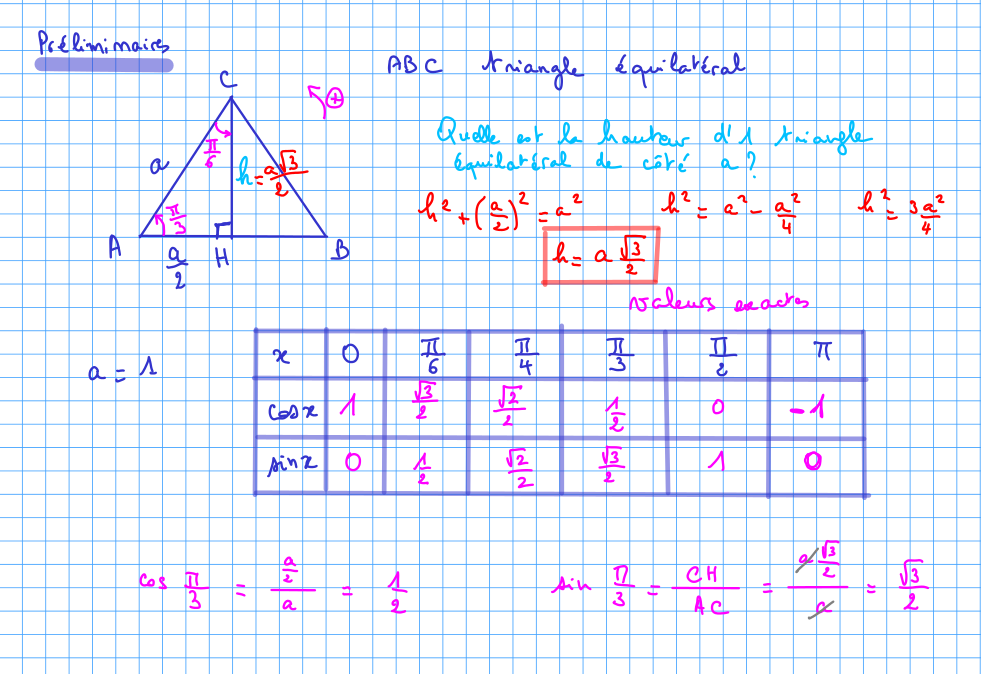 Préliminaires
ABC triangle équilatéral
C
⊕
Quelle est la hauteur d'1 triangle
équilatéral de côté a ?
π/6
a
h = a√3/2
π/3
h² + (a/2)² = a² h² = a² - a²/4 h² = 3a²/4
A a/2 H B
h = a √3/2
valeurs exactes
a = 1
x 0 π/6 π/4 π/3 π/2 π
cos x 1 √3/2 √2/2 1/2 0 -1
sin x 0 1/2 √2/2 √3/2 1 0
cos π/3 = (a/2)/a = 1/2 sin π/3 = CH/AC = (a √3/2)/a = √3/2